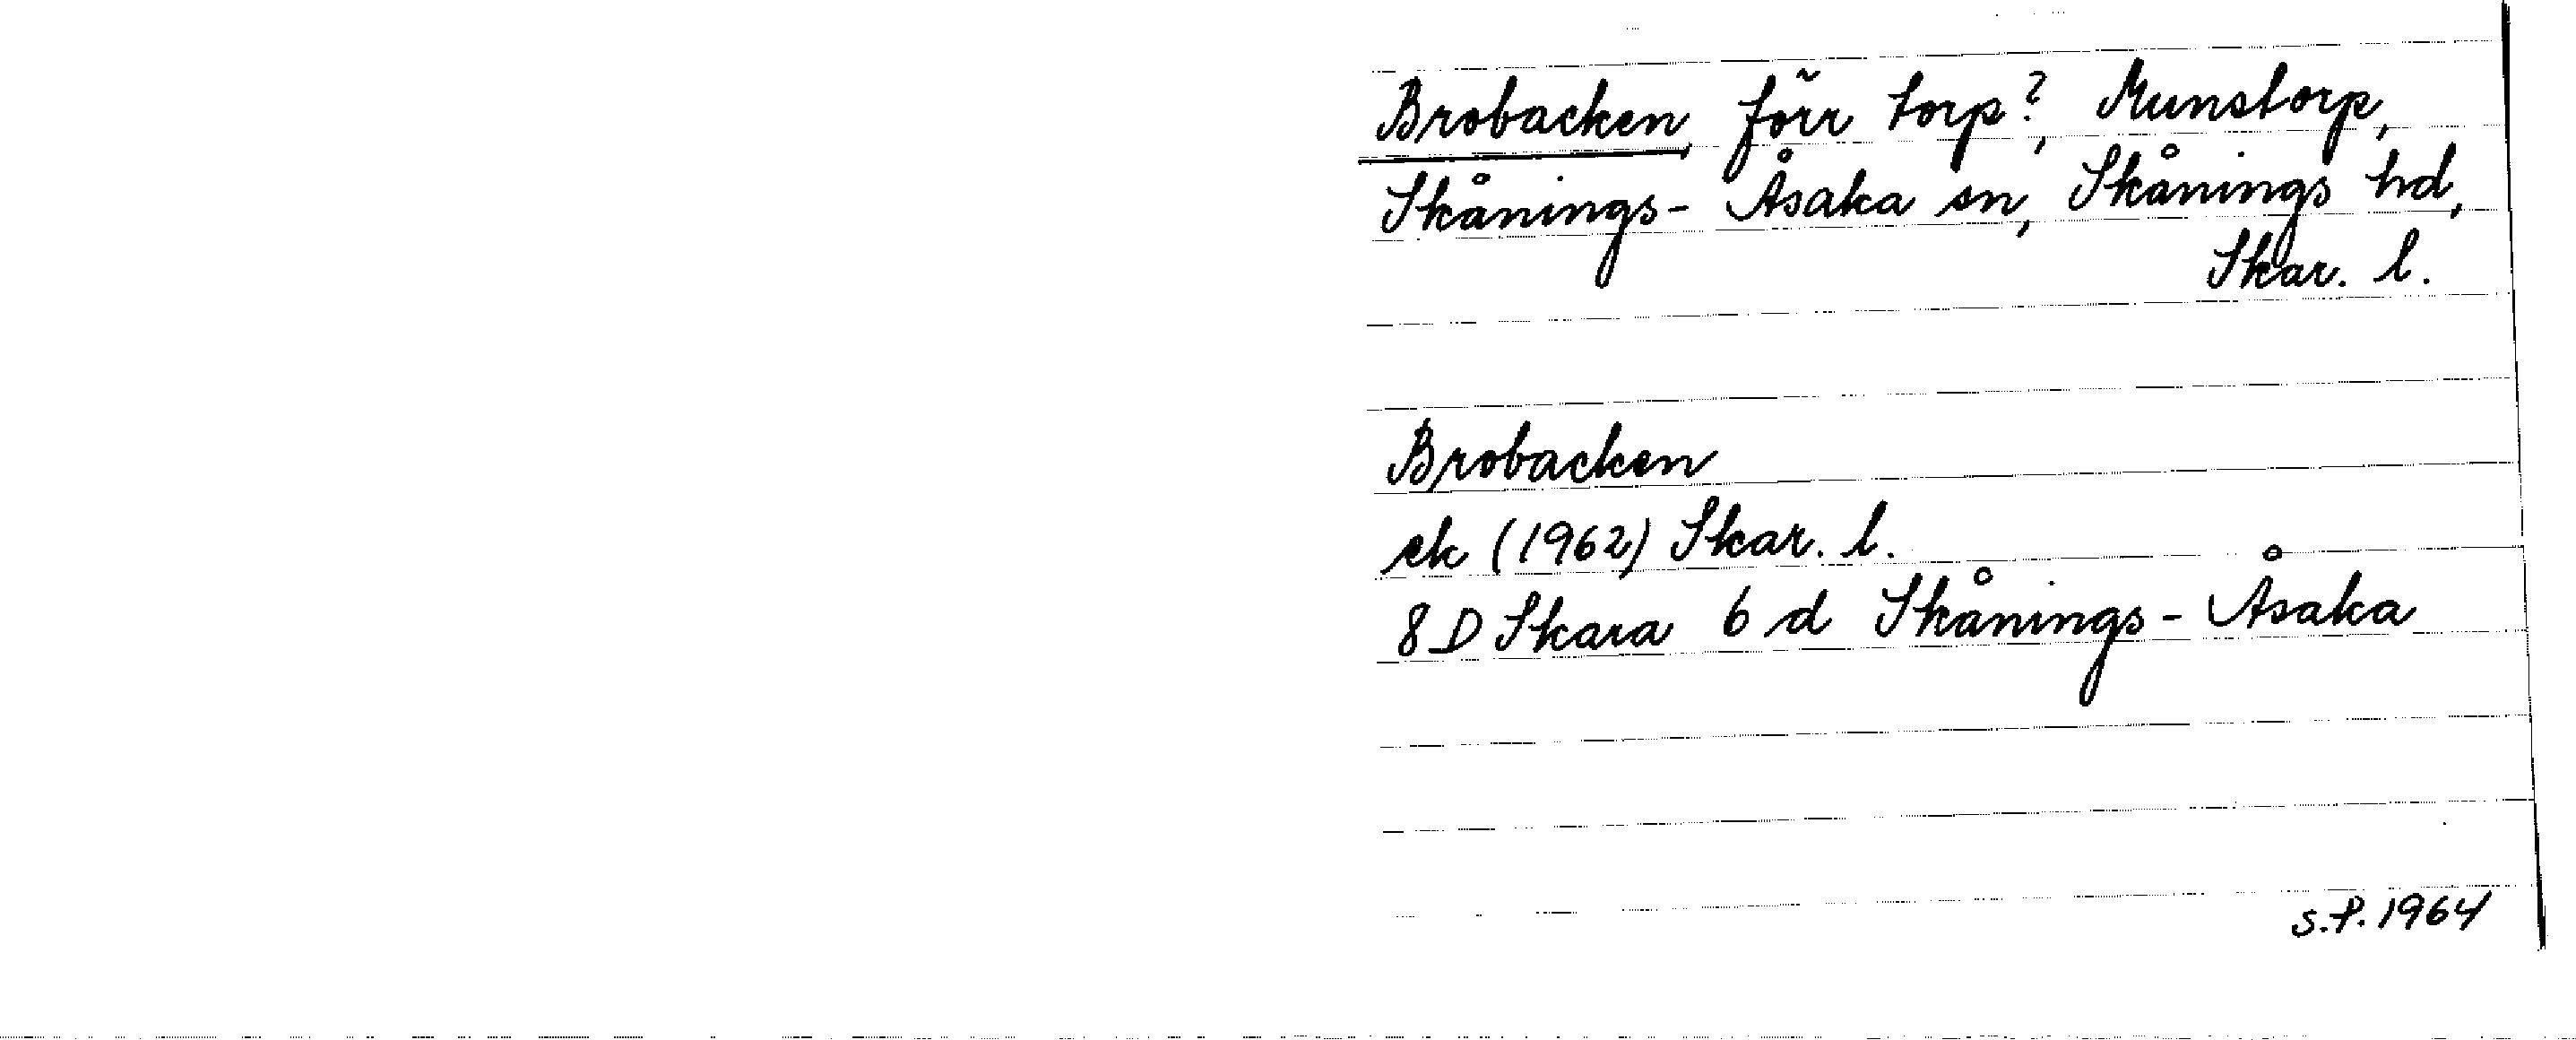 Brobacken förr torp?, Munstorp,
Skånings-Åsaka sn, Skånings hd,
Skar. l.
Brobacken
ek (1962) Skar. l.
8 D Skara 6 d Skånings-Åsaka
S.P. 1964